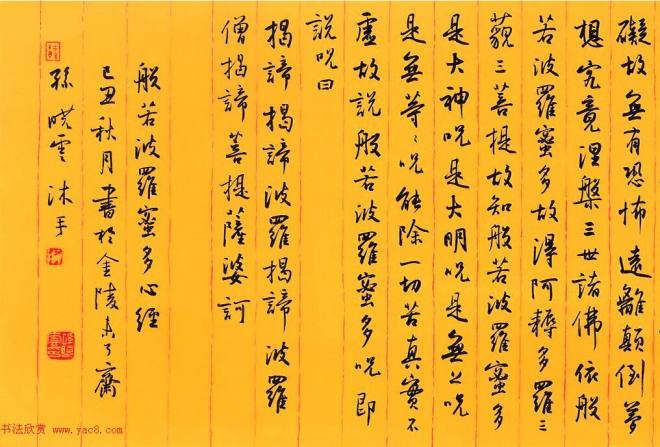 礙故無有恐怖遠離顛倒夢
想究竟涅槃三世諸佛依般
若波羅蜜多故得阿耨多羅三
藐三菩提故知般若波羅蜜多
是大神咒是大明咒是無上咒
是無等々咒能除一切苦真實不
虛故說般若波羅蜜多咒即
說咒曰
揭諦揭諦波羅揭諦波羅
僧揭諦菩提薩婆訶
般若波羅蜜多心經
己丑秋月書於金陵未了齋
孫曉雲沐手
书法欣赏 www.yac8.com